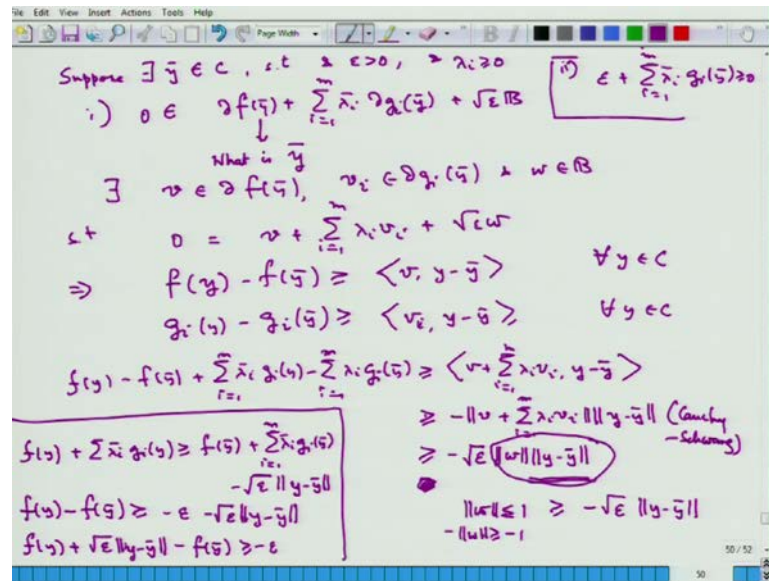 File Edit View Insert Actions Tools Help
Page Width
Suppose ∃ ȳ ∈ C, s.t & ε>0, & λi≥0
i) 0 ∈ ∂f(ȳ) + Σ_{i=1}^m λ̄i ∂gi(ȳ) + √ε 𝔹
ii) ε + Σ_{i=1}^m λ̄i gi(ȳ) ≥ 0
↓
What is ȳ
∃ v ∈ ∂f(ȳ), vi ∈ ∂gi(ȳ) & w ∈ 𝔹
s.t 0 = v + Σ_{i=1}^m λi vi + √ε w
⇒ f(y) - f(ȳ) ≥ <v, y-ȳ> ∀ y ∈ C
gi(y) - gi(ȳ) ≥ <vi, y-ȳ>, ∀ y ∈ C
f(y) - f(ȳ) + Σ_{i=1}^m λ̄i gi(y) - Σ_{i=1}^m λi gi(ȳ) ≥ <v + Σ_{i=1}^m λi vi, y-ȳ>
≥ -||v + Σ_{i=1}^m λi vi|| ||y-ȳ|| (Cauchy
-Schwarz)
≥ -√ε ||w|| ||y-ȳ||
||w|| ≤ 1 ≥ -√ε ||y-ȳ||
-||w|| ≥ -1
f(y) + Σ λ̄i gi(y) ≥ f(ȳ) + Σ_{i=1}^m λ̄i gi(ȳ)
-√ε ||y-ȳ||
f(y) - f(ȳ) ≥ -ε -√ε ||y-ȳ||
f(y) + √ε ||y-ȳ|| - f(ȳ) ≥ -ε
50 / 52
50